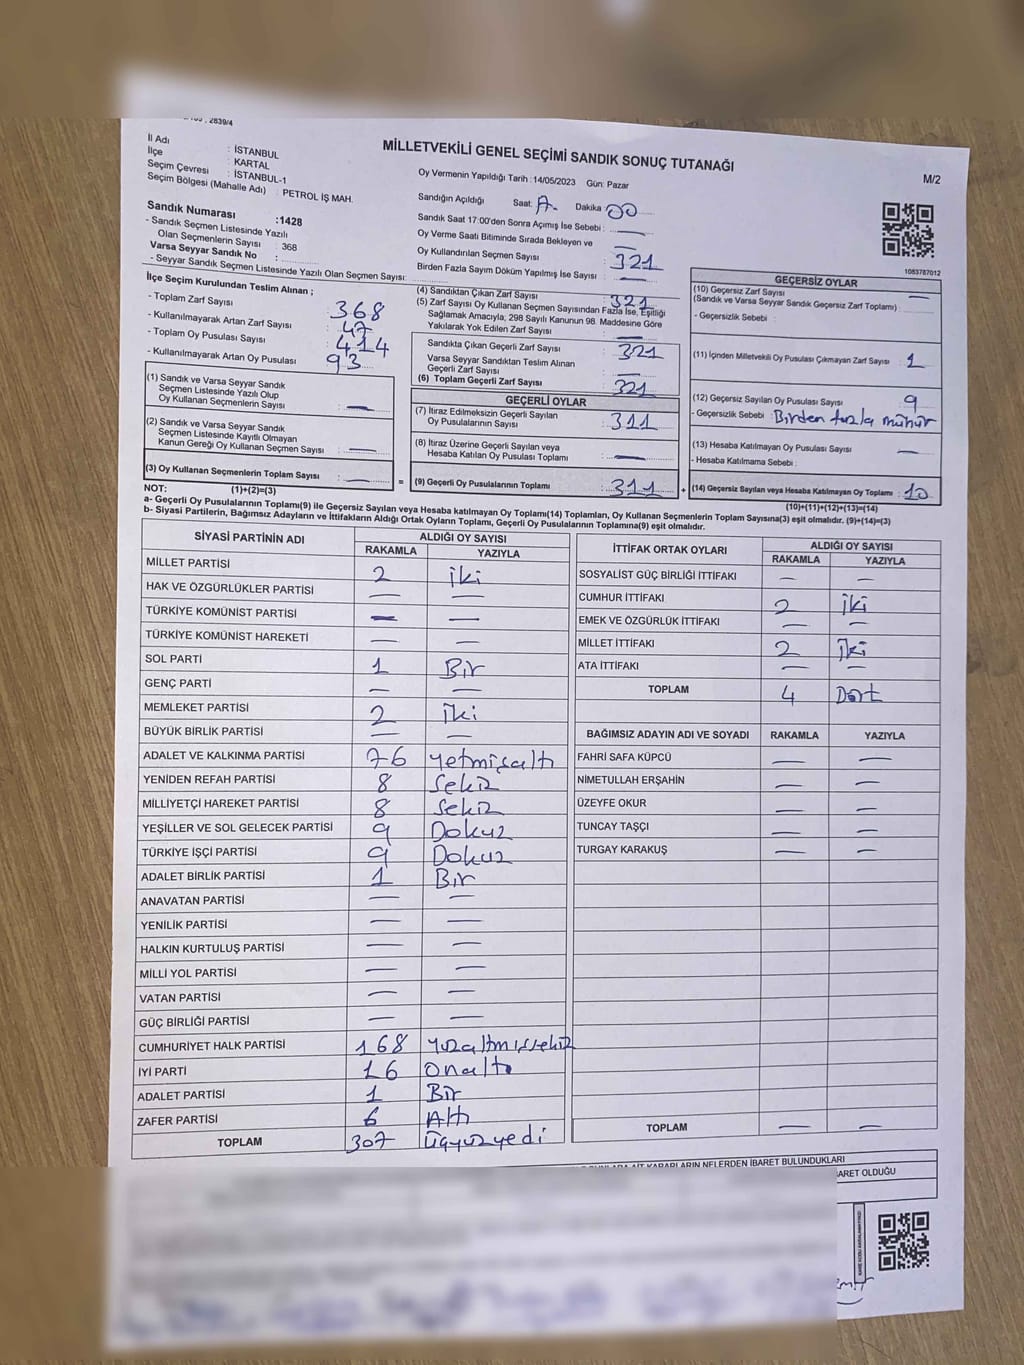 2839/4
MİLLETVEKİLİ GENEL SEÇİMİ SANDIK SONUÇ TUTANAĞI
M/2
İl Adı : İSTANBUL
İlçe : KARTAL
Seçim Çevresi : İSTANBUL-1
Seçim Bölgesi (Mahalle Adı) : PETROL İŞ MAH.
Sandık Numarası :1428
- Sandık Seçmen Listesinde Yazılı
Olan Seçmenlerin Sayısı : 368
Varsa Seyyar Sandık No :
- Seyyar Sandık Seçmen Listesinde Yazılı Olan Seçmen Sayısı:
Oy Vermenin Yapıldığı Tarih :14/05/2023 Gün: Pazar
Sandığın Açıldığı Saat: Dakika : 00
Sandık Saat 17:00'den Sonra Açımış İse Sebebi : —
Oy Verme Saati Bitiminde Sırada Bekleyen ve
Oy Kullandırılan Seçmen Sayısı : —
321
Birden Fazla Sayım Döküm Yapılmış İse Sayısı : —
İlçe Seçim Kurulundan Teslim Alınan ;
- Toplam Zarf Sayısı : 368
- Kullanılmayarak Artan Zarf Sayısı : 47
- Toplam Oy Pusulası Sayısı : 414
- Kullanılmayarak Artan Oy Pusulası : 93
(1) Sandık ve Varsa Seyyar Sandık
Seçmen Listesinde Yazılı Olup
Oy Kullanan Seçmenlerin Sayısı : —
(2) Sandık ve Varsa Seyyar Sandık
Seçmen Listesinde Kayıtlı Olmayan
Kanun Gereği Oy Kullanan Seçmen Sayısı : —
(3) Oy Kullanan Seçmenlerin Toplam Sayısı : —
(1)+(2)=(3)
(4) Sandıktan Çıkan Zarf Sayısı : 321
(5) Zarf Sayısı Oy Kullanan Seçmen Sayısından Fazla İse, Eşitliği
Sağlamak Amacıyla, 298 Sayılı Kanunun 98. Maddesine Göre
Yakılarak Yok Edilen Zarf Sayısı : —
Sandıkta Çıkan Geçerli Zarf Sayısı : 321
Varsa Seyyar Sandıktan Teslim Alınan
Geçerli Zarf Sayısı : —
(6) Toplam Geçerli Zarf Sayısı : 321
GEÇERLİ OYLAR
(7) İtiraz Edilmeksizin Geçerli Sayılan
Oy Pusulalarının Sayısı : 311
(8) İtiraz Üzerine Geçerli Sayılan veya
Hesaba Katılan Oy Pusulası Toplamı : —
= (9) Geçerli Oy Pusulalarının Toplamı : 311 +
1083787012
GEÇERSİZ OYLAR
(10) Geçersiz Zarf Sayısı
(Sandık ve Varsa Seyyar Sandık Geçersiz Zarf Toplamı) : —
- Geçersizlik Sebebi :
(11) İçinden Milletvekili Oy Pusulası Çıkmayan Zarf Sayısı : 1
(12) Geçersiz Sayılan Oy Pusulası Sayısı : 9
- Geçersizlik Sebebi : Birden fazla mühür
(13) Hesaba Katılmayan Oy Pusulası Sayısı : —
- Hesaba Katılmama Sebebi :
(14) Geçersiz Sayılan veya Hesaba Katılmayan Oy Toplamı : 10
(10)+(11)+(12)+(13)=(14)
NOT:
a- Geçerli Oy Pusulalarının Toplamı(9) ile Geçersiz Sayılan veya Hesaba katılmayan Oy Toplamı(14) Toplamları, Oy Kullanan Seçmenlerin Toplam Sayısına(3) eşit olmalıdır. (9)+(14)=(3)
b- Siyasi Partilerin, Bağımsız Adayların ve İttifakların Aldığı Ortak Oyların Toplamı, Geçerli Oy Pusulalarının Toplamına(9) eşit olmalıdır.
SİYASİ PARTİNİN ADI ALDIĞI OY SAYISI
RAKAMLA YAZIYLA
MİLLET PARTİSİ 2 iki
HAK VE ÖZGÜRLÜKLER PARTİSİ — —
TÜRKİYE KOMÜNİST PARTİSİ — —
TÜRKİYE KOMÜNİST HAREKETİ — —
SOL PARTİ 1 Bir
GENÇ PARTİ — —
MEMLEKET PARTİSİ 2 iki
BÜYÜK BİRLİK PARTİSİ — —
ADALET VE KALKINMA PARTİSİ 76 yetmişaltı
YENİDEN REFAH PARTİSİ 8 Sekiz
MİLLİYETÇİ HAREKET PARTİSİ 8 Sekiz
YEŞİLLER VE SOL GELECEK PARTİSİ 9 Dokuz
TÜRKİYE İŞÇİ PARTİSİ 9 Dokuz
ADALET BİRLİK PARTİSİ 1 Bir
ANAVATAN PARTİSİ — —
YENİLİK PARTİSİ — —
HALKIN KURTULUŞ PARTİSİ — —
MİLLİ YOL PARTİSİ — —
VATAN PARTİSİ — —
GÜÇ BİRLİĞİ PARTİSİ — —
CUMHURİYET HALK PARTİSİ 168 yüzaltmışsekiz
İYİ PARTİ 16 onaltı
ADALET PARTİSİ 1 Bir
ZAFER PARTİSİ 6 Altı
TOPLAM 307 üçyüzyedi
İTTİFAK ORTAK OYLARI ALDIĞI OY SAYISI
RAKAMLA YAZIYLA
SOSYALİST GÜÇ BİRLİĞİ İTTİFAKI — —
CUMHUR İTTİFAKI 2 iki
EMEK VE ÖZGÜRLÜK İTTİFAKI — —
MİLLET İTTİFAKI 2 iki
ATA İTTİFAKI — —
TOPLAM 4 Dört
BAĞIMSIZ ADAYIN ADI VE SOYADI RAKAMLA YAZIYLA
FAHRİ SAFA KÜPCÜ — —
NİMETULLAH ERŞAHİN — —
ÜZEYFE OKUR — —
TUNCAY TAŞÇI — —
TURGAY KARAKUŞ — —
TOPLAM — —
AİT KARARLARIN NELERDEN İBARET BULUNDUKLARI
OLDUĞU